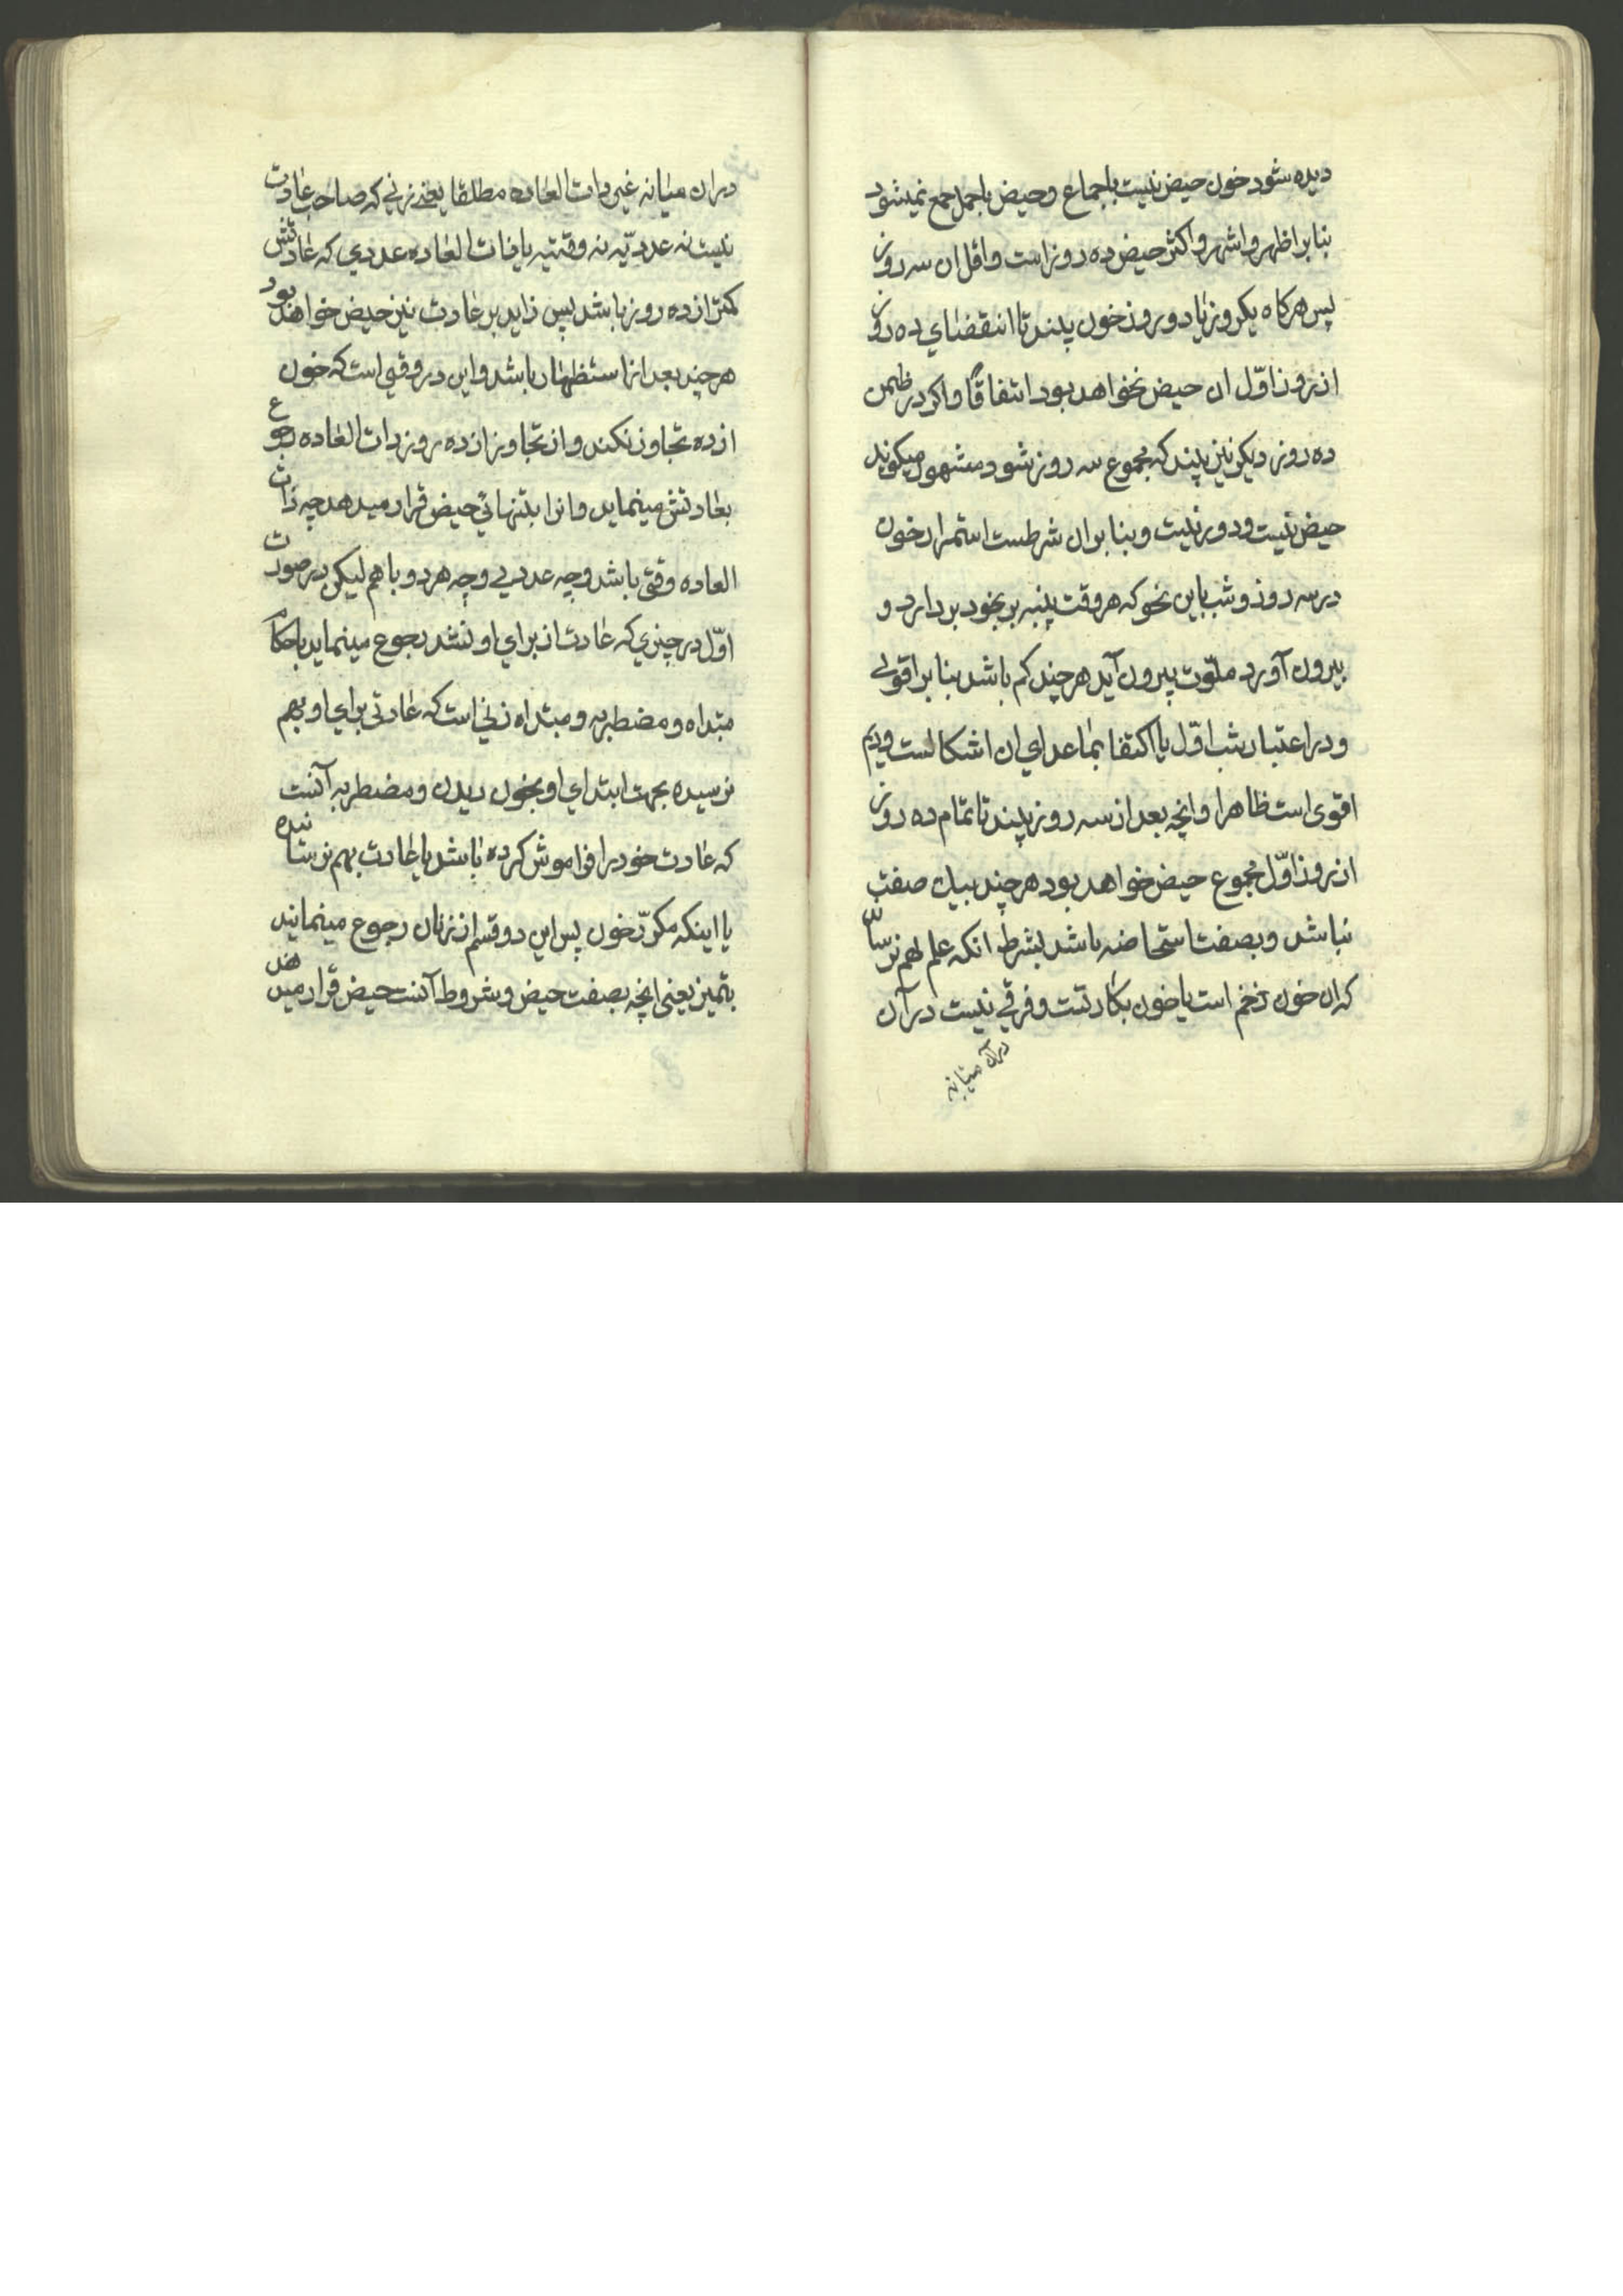 دیده شود خون حیض نیست باجماع و حیض باحمل جمع نمیشود
بنابر اظهر و اشهر و اکثر حیض ده روز است و اقل ان سه روز
پس هرکاه یکروز یا دو روز خون بیند تا انقضای ده روز
از روز اوّل ان حیض نخواهد بود اتفاقًا و اکر در
ده روز دیکر نیز بیند که مجموع سه روز شود مشهور میکویند
حیض نیست و دور نیست و بنابر ان شرطست استمرار خون
در سه روز و شب باین نحو که هر وقت پنبه بر بخود بردارد و
بیرون آورد ملوّث بیرون آید هرچند کم باشد بنابر اقوی
و در اعتبار شب اوّل یا اکتفا بماعدای ان اشکالست
اقوی است ظاهرا و انچه بعد از سه روز بیند تا تمام ده روز
از روز اوّل مجموع حیض خواهد بود هرچند صفت
نباشد و بصفت استحاضه باشد بشرط انکه علم بهم نرساند
که ان خون زخم است یا خون بکارتست و فرقی نیست در آن
در آن میانه
در ان میانه غیر ذات العاده مطلقا یعنی زنی که صاحب عادت
نیست نه عددیّه نه وقتیه یا ذات العاده عددی که عادتش
کمتر از ده روز باشد پس زاید بر عادت نیز حیض خواهد بود
هرچند بعد از استظهار باشد و این در وقتی است که خون
از ده تجاوز نکند و از تجاوز از ده روز ذات العاده رجوع
بعادتش مینماید و انرا بتنهائی حیض قرار میدهد چه ذات
العاده وقتی باشد و چه عددی و چه هر دو باهم لیکن در صورت
اوّل در چیزی که عادت از برای او نشد رجوع مینماید باحکام
مبتداه و مضطربه و مبتداه زنی است که عادتی برای او بهم
نرسیده بجهت ابتدای او بخون دیدن و مضطربه آنست
که عادت خود را فراموش کرده باشد یا عادت بهم نرسانیده
یا اینکه مکرّر خون پس این دو قسم از زنان رجوع مینمایند
بتمیز یعنی انچه بصفت حیض و شروط آنست حیض قرار میدهد